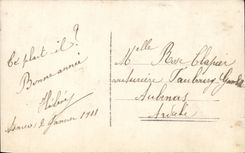 Ce plait-il?
Bonne année
Hélène
2 Janvier 1911
Mlle Rose Clapier
couturière Faubourg
Aubenas
Ardèche